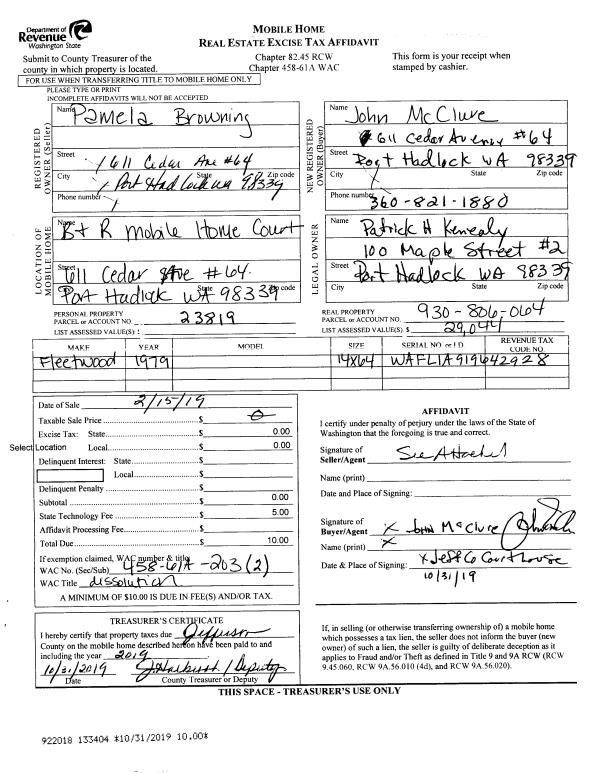 Department of
Revenue
Washington State
MOBILE HOME
REAL ESTATE EXCISE TAX AFFIDAVIT
Submit to County Treasurer of the
county in which property is located.
Chapter 82.45 RCW
Chapter 458-61A WAC
This form is your receipt when
stamped by cashier.
FOR USE WHEN TRANSFERRING TITLE TO MOBILE HOME ONLY
PLEASE TYPE OR PRINT
INCOMPLETE AFFIDAVITS WILL NOT BE ACCEPTED
REGISTERED OWNER (Seller)
Name
Pamela Browning
Street
611 Cedar Ave #64
City State Zip code
Port Hadlock WA 98339
Phone number
NEW REGISTERED OWNER (Buyer)
Name
John McClure
611 Cedar Avenue #64
Street
Port Hadlock WA 98339
City State Zip code
Phone number
360-821-1880
LOCATION OF MOBILE HOME
Name
B+R Mobile Home Court
Street
611 Cedar Ave #64
City State Zip code
Port Hadlock WA 98339
LEGAL OWNER
Name
Patrick H Kenealy
100 Maple Street #2
Street
Port Hadlock WA 98339
City State Zip code
PERSONAL PROPERTY
PARCEL or ACCOUNT NO. 23819
LIST ASSESSED VALUE(S) $
REAL PROPERTY
PARCEL or ACCOUNT NO. 930-806-064
LIST ASSESSED VALUE(S) $ 29,044
MAKE YEAR MODEL SIZE SERIAL NO. or I.D. REVENUE TAX CODE NO.
Fleetwood 1979 14X64 WAFL1A919642928
Date of Sale 2/15/19
Taxable Sale Price $ 0
Excise Tax: State $ 0.00
Select Location Local $ 0.00
Delinquent Interest: State $
Local $
Delinquent Penalty $
Subtotal $ 0.00
State Technology Fee $ 5.00
Affidavit Processing Fee $
Total Due $ 10.00
If exemption claimed, WAC number & title
WAC No. (Sec/Sub) 458-61A-203(2)
WAC Title dissolution
A MINIMUM OF $10.00 IS DUE IN FEE(S) AND/OR TAX.
AFFIDAVIT
I certify under penalty of perjury under the laws of the State of
Washington that the foregoing is true and correct.
Signature of
Seller/Agent See Attached
Name (print)
Date and Place of Signing:
Signature of
Buyer/Agent X John McClure
Name (print) X
Date & Place of Signing: X Jeff Co Courthouse
10/31/19
TREASURER'S CERTIFICATE
I hereby certify that property taxes due Jefferson
County on the mobile home described hereon have been paid to and
including the year 2019.
10/31/2019 / Deputy
Date County Treasurer or Deputy
If, in selling (or otherwise transferring ownership of) a mobile home
which possesses a tax lien, the seller does not inform the buyer (new
owner) of such a lien, the seller is guilty of deliberate deception as it
applies to Fraud and/or Theft as defined in Title 9 and 9A RCW (RCW
9.45.060, RCW 9A.56.010 (4d), and RCW 9A.56.020).
THIS SPACE - TREASURER'S USE ONLY
922018 133404 *10/31/2019 10.00*